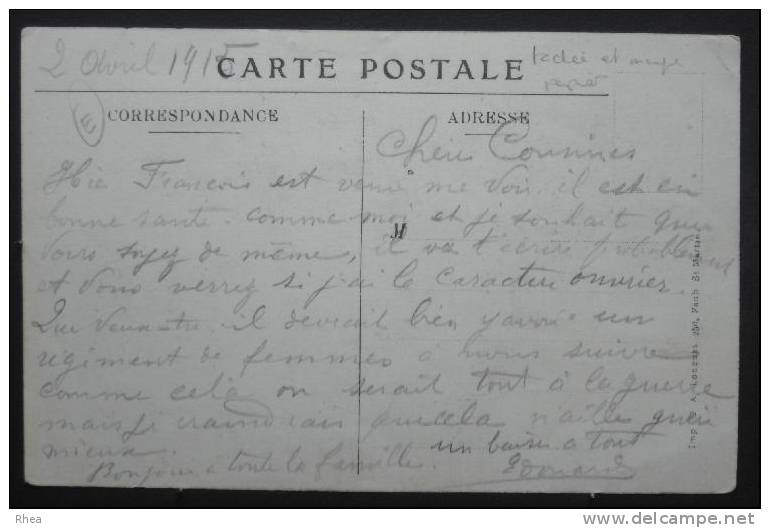 2 Avril 1915
CARTE POSTALE
tachée et
papier
E
CORRESPONDANCE
ADRESSE
Chers Cousines
Hie Francois est venu me voir il est en
bonne santé comme moi et je souhait que
vous soyez de même, il va t'écrire probablement
M
et vous verrez si j'ai le caractère ouvrier.
Qui il devrait bien y avoir un
régiment de femmes a nous suivre
comme cela on serait tout à la guerre
mais je craindrais que cela n'ailles guere
mieux. un baiser a tout
Bonjour a toute la famille. Edouard
Imp. A. Faub. St Martin
Rhea
www.delcampe.net